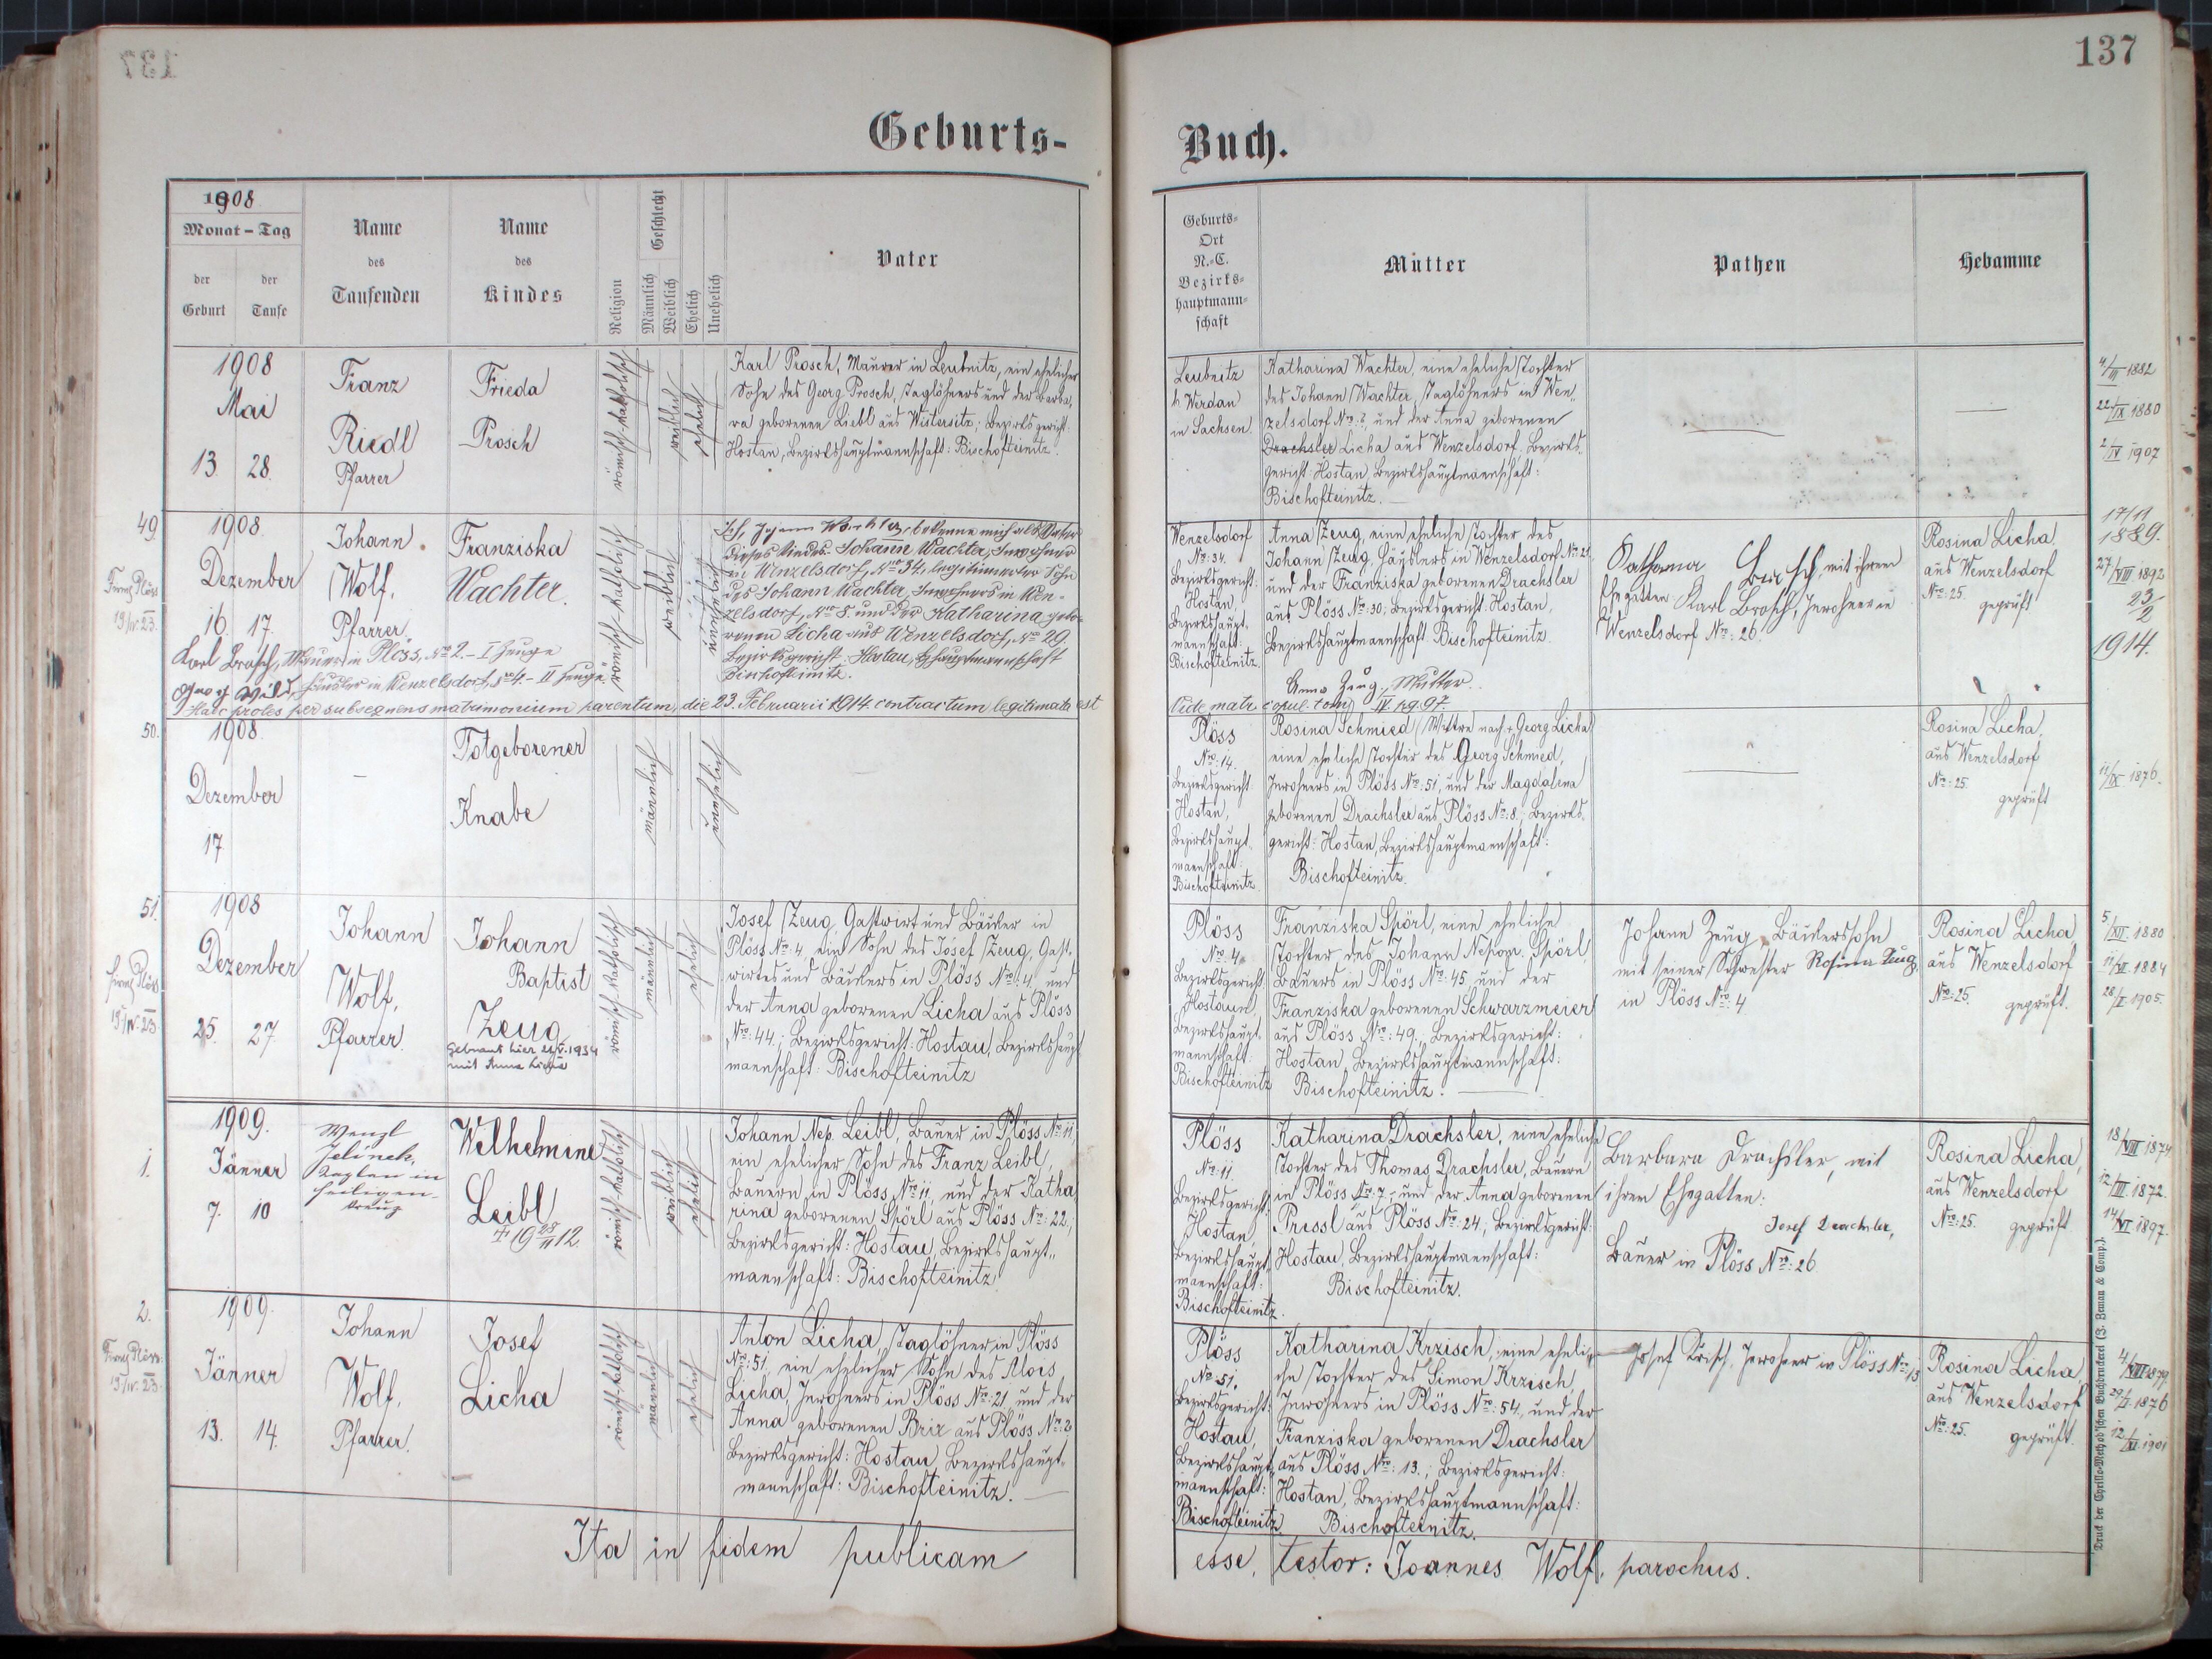 137
Geburts-
Buch.
1908
Monat - Tag
der Geburt
der Taufe
Name des Taufenden
Name des Kindes
Religion
Geschlecht
Männlich
Weiblich
Ehelich
Unehelich
Vater
Geburts-
Ort
N.-C.
Bezirks-
hauptmann-
schaft
Mutter
Pathen
Hebamme
1908
Mai
13. 28.
Franz
Riedl
Pfarrer
Frieda
Prosch
römisch-katholisch
weiblich
ehelich
Karl Prosch, Maurer in Leubnitz, ein ehelicher
Sohn des Georg Prosch, Taglöhners und der Barba-
ra geborenen Liebl aus Wistersitz; Bezirksgericht:
Hostau, Bezirkshauptmannschaft: Bischofteinitz.
Leubnitz
b. Werdau
in Sachsen.
Katharina Wachter, eine eheliche Tochter
des Johann Wachter, Taglöhners in Wen-
zelsdorf Nro: ?, und der Anna geborenen
Drachsler Licha aus Wenzelsdorf. Bezirks-
gericht: Hostau, Bezirkshauptmannschaft:
Bischofteinitz.
4/III 1882
22/IX 1880
2/IV 1907
49.
1908.
Dezember
16. 17.
Johann
Wolf,
Pfarrer
Franziska
Wachter.
römisch-katholisch
weiblich
unehelich
Ich, Johann Wachter, bekenne mich als Vater
dieses Kindes. Johann Wachter, Inwohner
in Wenzelsdorf, Nro 34, legitimierter Sohn
des Johann Wachter, Inwohners in Wen-
zelsdorf, Nro 5. und der Katharina, gebo-
renen Licha aus Wenzelsdorf, No 29.
Bezirksgericht: Hostau, Bzhauptmannschaft
Bischofteinitz.
Karl Brosch, Maurer in Plöss, Nro 2. - I Zeuge
Georg Wild, Häusler in Wenzelsdorf, No 4. - II Zeuge.
Haec proles per subsequens matrimonium parentum, die 23. Februarii 1914. contractum legitimata est
Vide matr. copul. tom. IV. pg. 97.
Wenzelsdorf
Nro: 34.
Bezirksgericht:
Hostau,
Bezirkshaupt-
mannschaft:
Bischofteinitz.
Anna Zeug, eine eheliche Tochter des
Johann Zeug, Häuslers in Wenzelsdorf Nro: 21.
und der Franziska geborenen Drachsler
aus Plöss Nro: 30; Bezirksgericht: Hostau,
Bezirkshauptmannschaft Bischofteinitz.
Anna Zeug, Mutter.
Katharina Brosch, mit ihrem
Ehegatten: Karl Brosch, Inwohner in
Wenzelsdorf Nro: 26.
Rosina Licha,
aus Wenzelsdorf
Nro: 25. geprüft
17/11
1889.
27/VIII 1892
23/2
1914.
50.
1908.
Dezember
17.
Totgeborener
Knabe
männlich
unehelich
Plöss
Nro: 14.
Bezirksgericht:
Hostau,
Bezirkshaupt-
mannschaft:
Bischofteinitz
Rosina Schmied (Witwe nach + Georg Licha)
eine eheliche Tochter des Georg Schmied,
Inwohners in Plöss Nro: 51, und der Magdalena
geborenen Drachsler aus Plöss Nro: 8; Bezirks-
gericht: Hostau, Bezirkshauptmannschaft:
Bischofteinitz.
Rosina Licha,
aus Wenzelsdorf
Nro: 25. geprüft
11/IX 1876.
51.
1908
Dezember
25. 27.
Johann
Wolf,
Pfarrer.
Johann
Baptist
Zeug
Getraut hier 21/V. 1934
mit Anna Licha
römisch-katholisch
männlich
ehelich
Josef Zeug, Gastwirt und Bäcker in
Plöss Nro: 4, ein Sohn des Josef Zeug, Gast-
wirtes und Bäckers in Plöss Nro: 4, und
der Anna geborenen Licha aus Plöss
Nro: 44.; Bezirksgericht: Hostau, Bezirkshaupt-
mannschaft: Bischofteinitz
Plöss
Nro: 4.
Bezirksgericht:
Hostaun,
Bezirkshaupt-
mannschaft:
Bischofteinitz
Franziska Spörl, eine eheliche
Tochter des Johann Nepom. Spörl,
Bauers in Plöss Nro: 45, und der
Franziska geborenen Schwarzmeier
aus Plöss Nro: 49.; Bezirksgericht:
Hostau, Bezirkshauptmannschaft:
Bischofteinitz.
Johann Zeug, Bäckerssohn
mit seiner Schwester Rosina Zeug,
in Plöss Nro: 4
Rosina Licha,
aus Wenzelsdorf
Nro: 25. geprüft.
5/XII. 1880
11/VI. 1884
28/I. 1905.
1.
1909.
Jänner
7. 10
Wenzl
Jelinek,
Kaplan in
Heiligen-
kreuz
Welhelmine
Leibl
+ 19 28/11 12.
römisch-katholisch
weiblich
ehelich
Johann Nep. Leibl, Bauer in Plöss Nro: 11,
ein ehelicher Sohn des Franz Leibl,
Bauern in Plöss Nro: 11, und der Katha-
rina geborenen Spörl aus Plöss Nro: 22.,
Bezirksgericht: Hostau, Bezirkshaupt-
mannschaft: Bischofteinitz.
Plöss
Nro: 11.
Bezirksgericht:
Hostau,
Bezirkshaupt-
mannschaft:
Bischofteinitz.
Katharina Drachsler, eine eheliche
Tochter des Thomas Drachsler, Bauern
in Plöss Nro: 7, und der Anna geborenen
Pressl aus Plöss Nro: 24; Bezirksgericht:
Hostau, Bezirkshauptmannschaft:
Bischofteinitz.
Barbara Drachsler, mit
ihrem Ehegatten:
Josef Drachsler,
Bauer in Plöss Nro: 26
Rosina Licha,
aus Wenzelsdorf
Nro: 25. geprüft
18/VIII 1874
12/III. 1872.
14/VI 1897.
2.
1909.
Jänner
13. 14.
Johann
Wolf.
Pfarrer.
Josef
Licha
römisch-katholisch
männlich
ehelich
Anton Licha, Taglöhner in Plöss
Nro: 51, ein ehelicher Sohn des Alois
Licha, Inwohners in Plöss Nro: 21, und der
Anna geborenen Brix aus Plöss Nro: 2
Bezirksgericht: Hostau, Bezirkshaupt-
mannschaft: Bischofteinitz.
Plöss
No 51.
Bezirksgericht:
Hostau,
Bezirkshaupt-
mannschaft:
Bischofteinitz
Katharina Krzisch, eine eheli-
che Tochter des Simon Krzisch,
Inwohners in Plöss Nro: 54, und der
Franziska geborenen Drachsler
aus Plöss Nro: 13.; Bezirksgericht:
Hostau, Bezirkshauptmannschaft:
Bischofteinitz.
Josef Krisch, Inwohner in Plöss Nro: 13
Rosina Licha,
aus Wenzelsdorf
Nro: 25. geprüft.
4/VIII 1879
29/I 1876
12/XI. 1901
Ita in fidem publicam
esse, testor: Joannes Wolf, parochus.